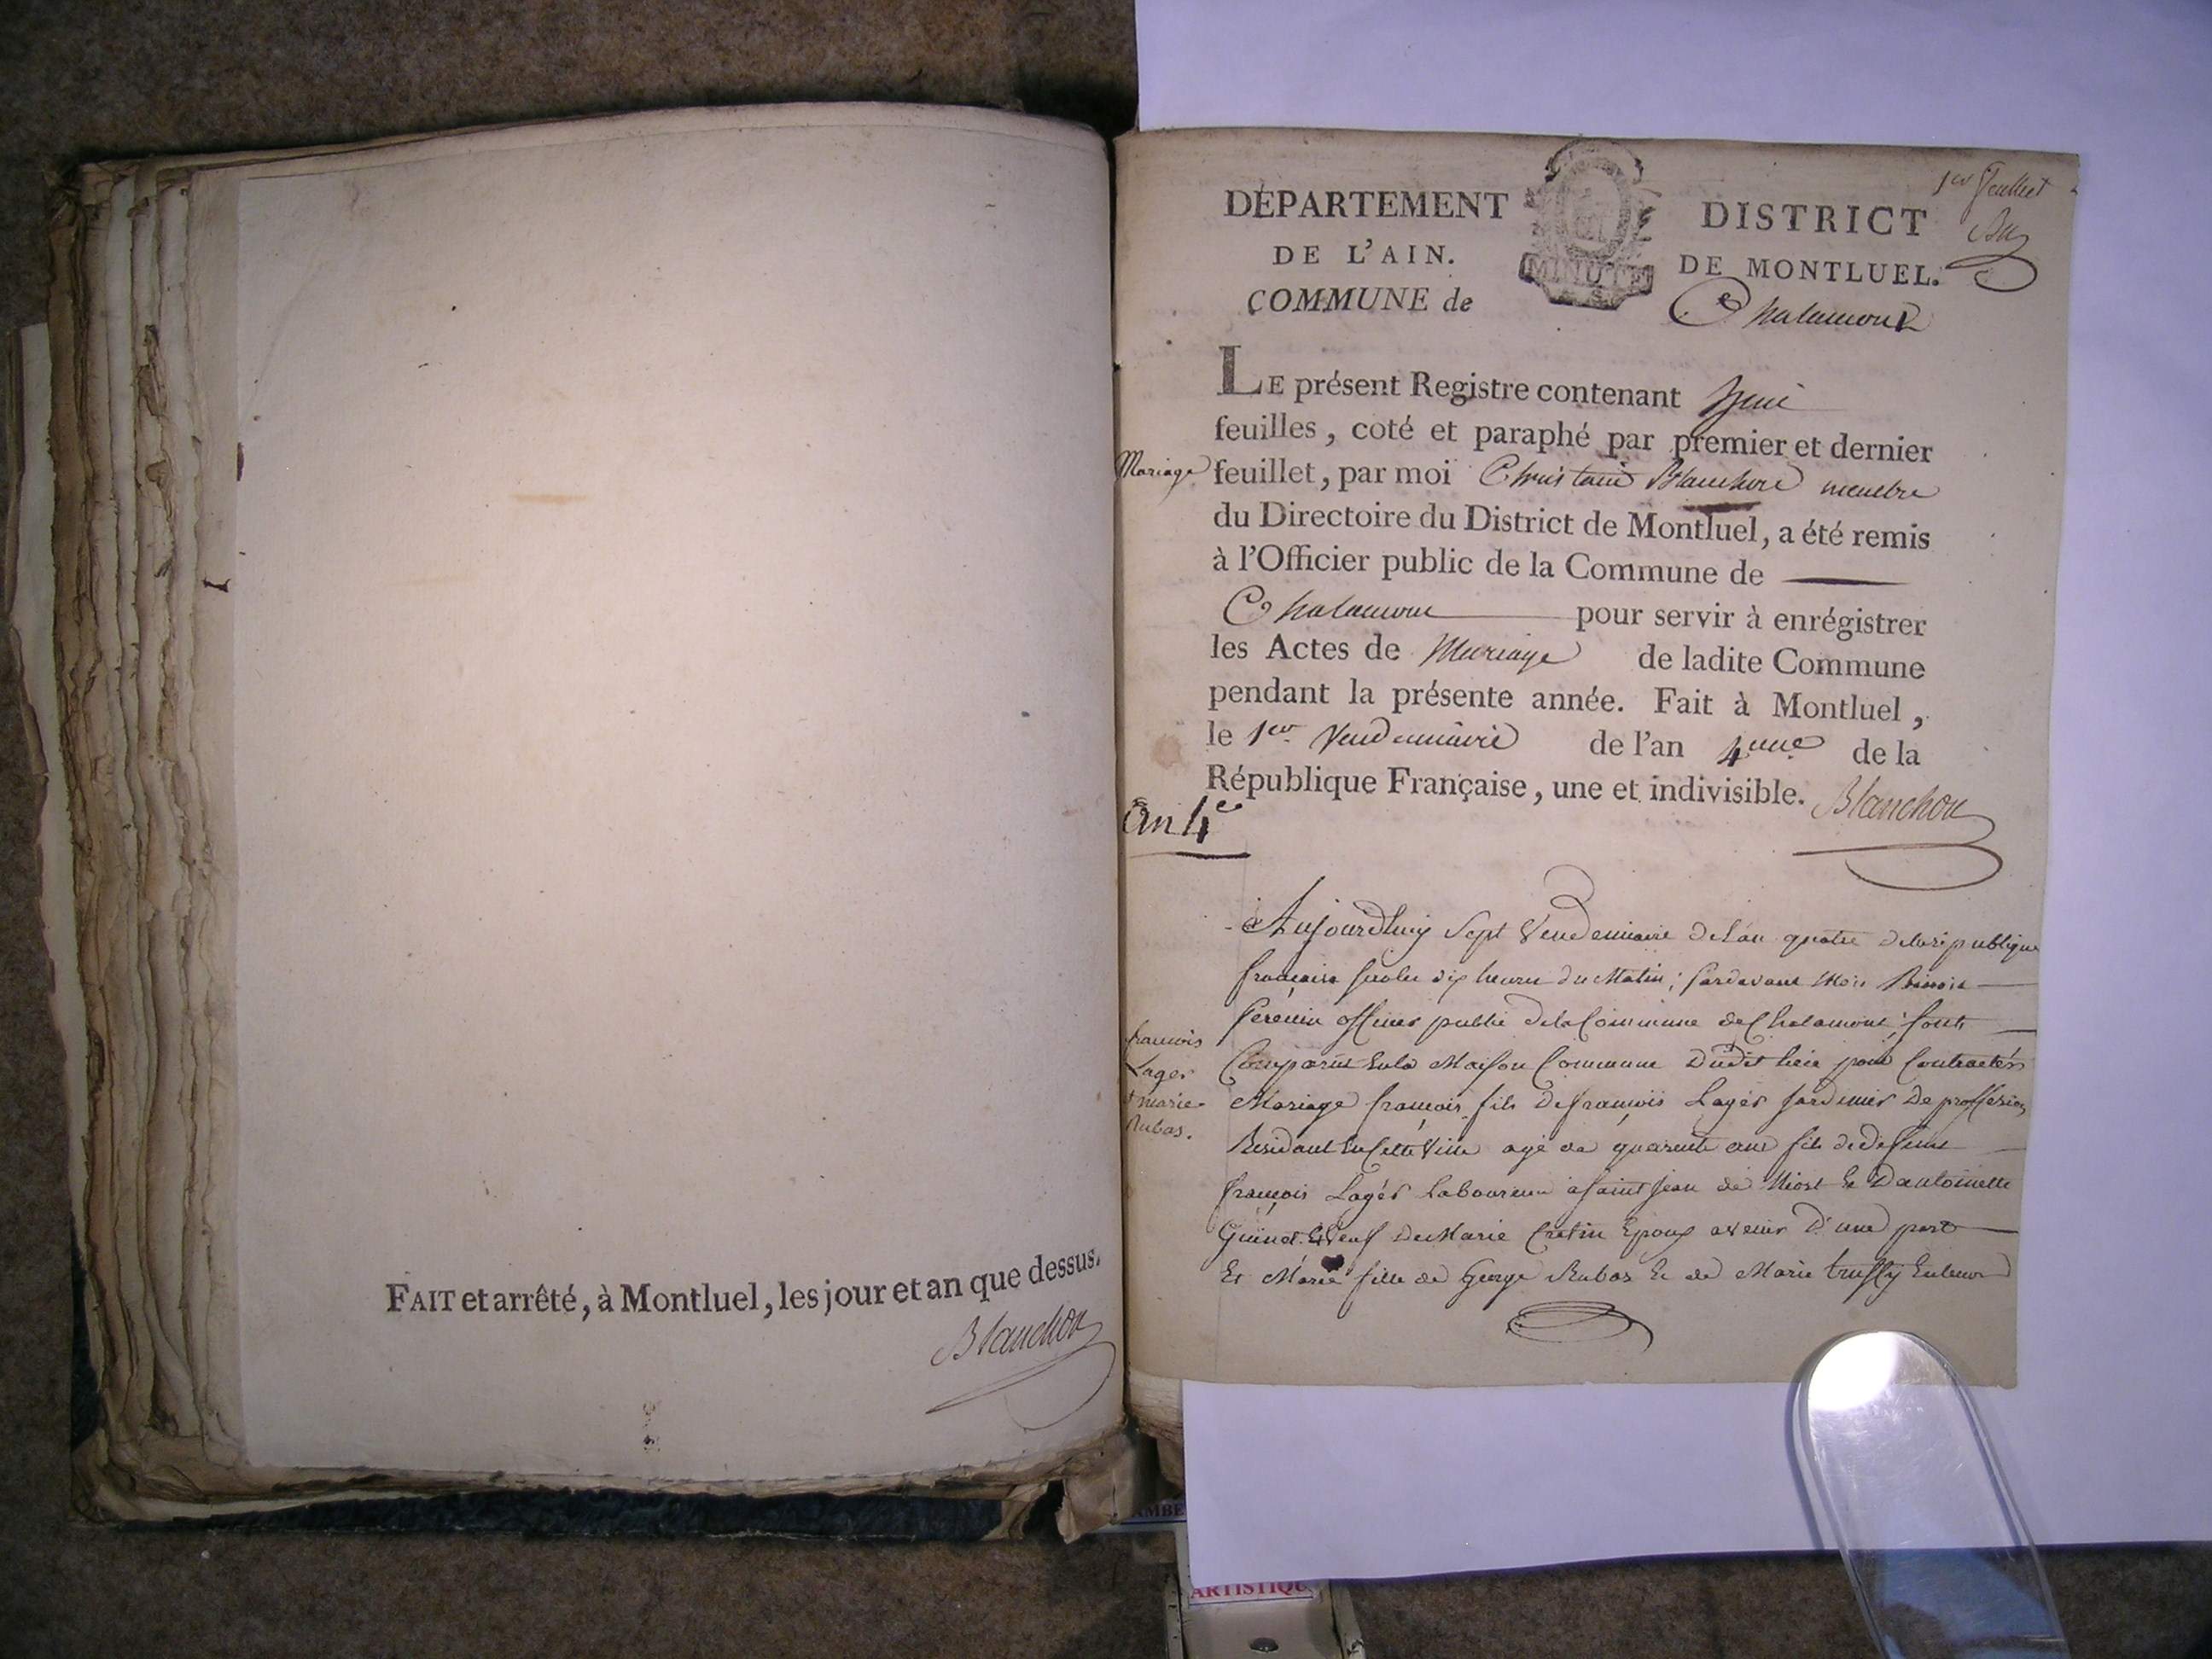 FAIT et arrêté, à Montluel, les jour et an que dessus.
Blanchon
1er feuillet
DÉPARTEMENT
DE L'AIN.
COMMUNE de
MINUTE
DISTRICT
DE MONTLUEL.
Chalamont
LE présent Registre contenant
feuilles, coté et paraphé par premier et dernier
Mariage
feuillet, par moi Blanchon membre
du Directoire du District de Montluel, a été remis
à l'Officier public de la Commune de
Chalamont pour servir à enrégistrer
les Actes de Mariage de ladite Commune
pendant la présente année. Fait à Montluel,
le 1er Vendemiaire de l'an 4eme de la
République Française, une et indivisible.
Blanchon
an 4e
Aujourdhuy Sept Vendemiaire de lan quatre de la republique
francaise dix heures du Matin; pardevant Moi
officier public de la Commune de Chalamont, sont
francois
Lager
et marie
Rubas.
Comparus en la Maison Commune dudit lieu pour Contracter
Mariage francois fils de francois Lager Jardinier de proffesion
Residant en cette Ville agé de quarente ans fils de defunt
francois Lager Laboureur a Saint Jean de Niost et Dantoinette
Guinet et Veuf de Marie Cretin Epoux avenir D'une part
Et Marie fille de George Rubas et de Marie
ARTISTIQU